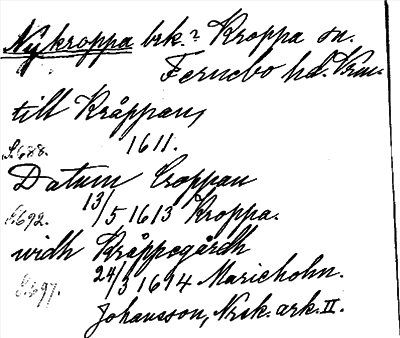 Nykroppa brk? Kroppa sn.
Fernebo hd. Vrm.
till Kråppan,
S. 688. 1611.
Datum Croppan
S. 692. 13/5 1613 Kroppa.
widh Kråppegårdh
S. 697. 24/3 1614 Mariehohn.
Johansson, Nrsk. ark. II.